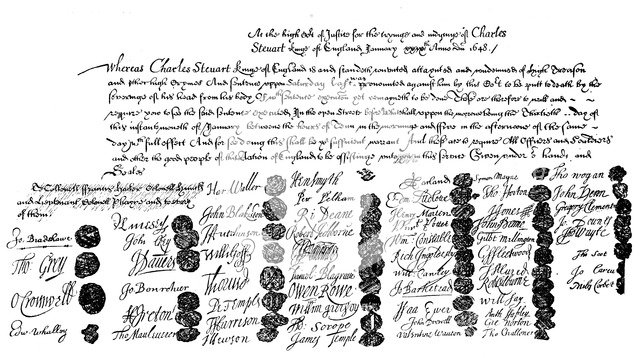 At the high Court of Justice for the tryinge and iudginge of Charles
Steuart Kinge of England January xxixth Anno Dni 1648./
Whereas Charles Steuart Kinge of England is and standeth convicted attaynted and condemned of High Treason
and other high Crymes And sentence uppon Saturday last was pronounced against him by this Court to be putt to death by the
severinge of his head from his body Of wch sentence execucon yet remayneth to be done These are therefore to will and
require you to see the said sentence executed In the open Streete before Whitehall uppon the morrowe being the Thirtieth day of
this instante moneth of January betweene the houres of Tenn in the morninge and Five in the afternoone of the same
day wth full effect And for soe doing this shall be your sufficient warrant And these are to require All Officers and Souldiers
and other the good people of this Nation of England to be assistinge unto you in this service Given under our hands and
Seales
To Collonell Francis Hacker Colonell Huncks
and Lieutenant Colonell Phayre and to every
of them.
Jo. Bradshawe
Tho. Grey
O Cromwell
Edw. Whalley
John Okey
J Danvers
Jo Bourchier
H Ireton
Tho. Mauleverer
Har. Waller
John Blakiston
J Hutchinson
Willi Goff
Pe Temple
T Harrison
J Hewson
Hen Smyth
Per. Pelham
Ri Deane
Robert Tichborne
Owen Rowe
Ad. Scrope
James Temple
Henry Marten
Wm Constable
Rich Ingoldesby
Will Cawley
Jo Barkstead
Isaa Ewer
John Dixwell
Valentine Wauton
Symon Mayne
Tho Horton
J Jones
Gilbt Millington
G Fleetwood
J Alured
Will Say
Anth. Stapley
Gre Norton
Tho Challoner
Tho Wogan
John Venn
Gregory Clement
Jo Downes
Tho Scot
Jo Carew
Miles Corbet